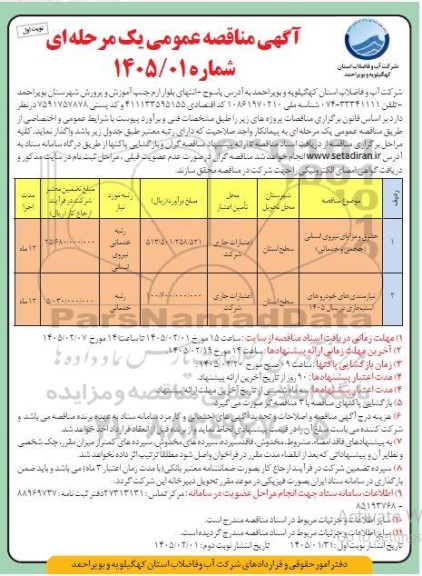 نوبت اول
آگهی مناقصه عمومی یک مرحله ای
شماره ۱۴۰۵/۰۱
شرکت آب و فاضلاب استان
کهگیلویه و بویراحمد
شرکت آب و فاضلاب استان کهگیلویه و بویراحمد به آدرس یاسوج -انتهای بلوار ارم جنب آموزش و پرورش شهرستان بویراحمد
-تلفن ۳۳۳۴۱۱۱۱-۰۷۴ شناسه ملی ۱۰۸۶۱۹۷۰۲۱۰ کد اقتصادی ۴۱۱۱۳۳۵۹۵۱۵۵ و کد پستی ۷۵۹۱۷۵۷۸۷۸ در نظر
دارد بر اساس قانون برگزاری مناقصات پروژه های زیر را طبق مشخصات فنی و برآورد پیوست با شرایط عمومی و اختصاصی از
طریق مناقصه عمومی یک مرحله ای به پیمانکار واجد صلاحیت که دارای رتبه معتبر طبق جدول زیر باشد واگذار نماید. کلیه
مراحل برگزاری مناقصه از دریافت اسناد مناقصه تا ارائه پیشنهاد مناقصه گران و بازگشایی پاکتها از طریق درگاه سامانه ستاد به
آدرس www.setadiran.ir انجام خواهد شد مناقصه گران در صورت عدم عضویت قبلی ، مراحل ثبت نام در سایت مذکور و
دریافت گواهی امضای الکترونیکی را جهت شرکت در مناقصه محقق سازند.
ردیف موضوع مناقصه شهرستان محل تحویل محل تأمین اعتبار مبلغ برآورد (ریال) رتبه مورد نیاز مبلغ تضمین معتبر شرکت در فرآیند ارجاع کار (ریال) مدت اجرا
۱ حقوق و مزایای نیروی انسانی (حجمی و خدماتی) سطح استان اعتبارات جاری شرکت ۵۱۳/۵۰۱/۲۵۸/۵۲۱ رتبه خدماتی نیروی انسانی ۲۵/۶۸۰/۰۰۰/۰۰۰ ۱۲ ماه
۲ نیازمندی های خودرو های استیجاری در سال ۱۴۰۵ سطح استان اعتبارات جاری شرکت ۱۰۰/۶۰۰/۰۰۰/۰۰۰ رتبه خدماتی ۵/۰۳۰/۰۰۰/۰۰۰ ۱۲ ماه
۱) مهلت زمانی دریافت اسناد مناقصه از سایت : ساعت ۱۵ مورخ ۱۴۰۵/۰۲/۰۱ تا ساعت ۱۴ مورخ ۱۴۰۵/۰۲/۰۷
۲) آخرین مهلت زمانی ارائه پیشنهادها: ساعت ۱۴ مورخ ۱۴۰۵/۰۲/۱۹
۳) زمان بازگشایی پاکتها: ساعت ۰۹ صبح مورخ ۱۴۰۵/۰۲/۲۰
۴) مدت اعتبار پیشنهادها: ۹۰ روز از تاریخ آخرین ارائه پیشنهاد.
۵) بازگشایی پاکتهای مناقصه با ۳ مناقصه گر صورت می گیرد.
۶) هزینه درج آگهی مناقصه و اصلاحات و تجدید آگهی های احتمالی و کارمزد سامانه ستاد به عهده برنده مناقصه می باشد و
۷) به پیشنهادهای فاقد امضاء، مشروط، مخدوش، فاقد سپرده، سپرده های مخدوش، سپرده های کمتر از میزان مقرر، چک شخصی
و نظایر آن و پیشنهاداتی که بعد از انقضاء مدت مقرر در فراخوان واصل شود مطلقا ترتیب اثر داده نخواهد شد.
۸) سپرده تضمین شرکت در فرآیند ارجاع کار بصورت ضمانتنامه معتبر بانکی (با مدت زمان اعتبار ۳ ماه) می باشد و باید ضمن
بارگذاری در سامانه ستاد ایران بصورت فیزیکی در موعد مقرر تحویل دبیرخانه این شرکت گردد.
۹) اطلاعات سامانه ستاد جهت انجام مراحل عضویت در سامانه : مرکز تماس : ۲۷۳۱۳۱۳۱ دفتر ثبت نامه : ۸۸۹۶۹۷۳۷
- ۸۵۱۹۳۷۶۸
۱۰) سایر اطلاعات و جزئیات مربوط در اسناد مناقصه مندرج است.
۱۱) سایر اطلاعات و جزئیات مربوط در اسناد مناقصه مندرج گردیده است.
تاریخ انتشار نوبت اول: ۱۴۰۵/۰۱/۳۱ تاریخ انتشار نوبت دوم: ۱۴۰۵/۰۲/۰۱
دفتر امور حقوقی و قراردادهای شرکت آب وفاضلاب استان کهگیلویه و بویراحمد
ParsNamadData